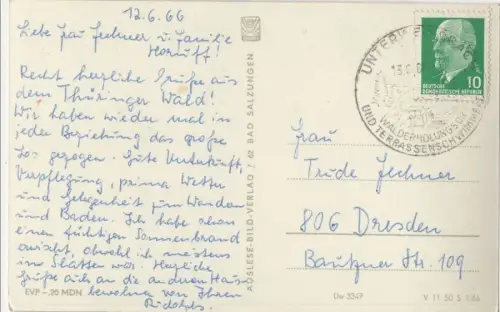 12.6.66
Liebe Frau Jechner u. Familie
Recht herzliche Grüße aus
dem Thüringer Wald!
Wir haben wieder mal in
jeder Beziehung das große
Los gezogen. Gute Unterkunft,
Verpflegung, prima Wetter
und Gelegenheit zum Wandern
und Baden. Ich habe schon
einen tüchtigen Sonnenbrand
erwischt, obwohl ich meistens
im Schatten war. Herzliche
Grüße auch an die anderen Haus-
bewohner von Ihren
EVP -,20 MDN
AUSLESE-BILD-VERLAG · 62 BAD SALZUNGEN
UND TERRASSENSCHWIMMBAD
10
DEUTSCHE
DEMOKRATISCHE REPUBLIK
Frau
Trude Jechner
806 Dresden
Bautzner Str. 109
Uw 3349
V 11 50 S 1/66